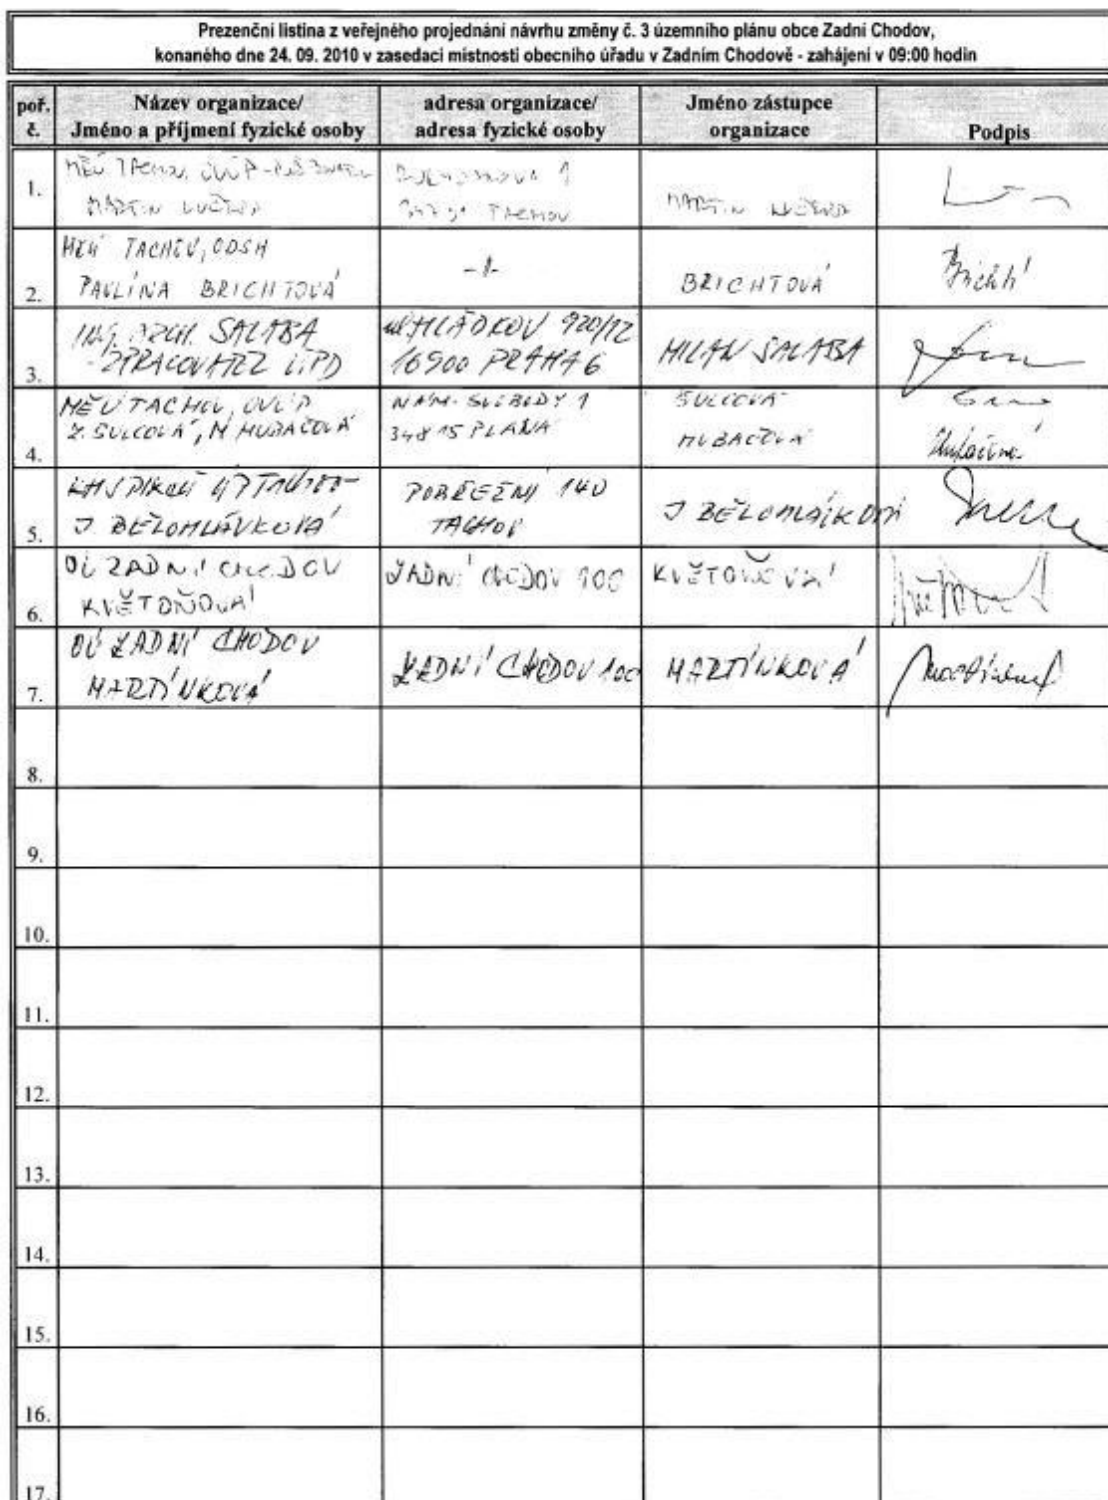 Prezenční listina z veřejného projednání návrhu změny č. 3 územního plánu obce Zadní Chodov,
konaného dne 24. 09. 2010 v zasedací místnosti obecního úřadu v Zadním Chodově - zahájení v 09:00 hodin
poř. č. Název organizace/ Jméno a příjmení fyzické osoby adresa organizace/ adresa fyzické osoby Jméno zástupce organizace Podpis
1. MĚÚ TACHOV, OVÚP
MARTIN
1
TACHOV
MARTIN
2. MĚÚ TACHOV, ODSH
PAVLÍNA BRICHTOVÁ
-"-
BRICHTOVÁ
3. ING. ARCH. SALABA
- ZPRACOVATEL ÚPD
HLÁDKOV 920/12
16900 PRAHA 6
MILAN SALABA
4. MĚÚ TACHOV, OVÚP
Z. SULCOVÁ, M HUBAČOVÁ
NÁM. SVOBODY 1
34815 PLANÁ
SULCOVÁ
HUBAČOVÁ
5. KHS ÚP TACHOV
J. BĚLOHLÁVKOVÁ
POBŘEŽNÍ 140
TACHOV
J BĚLOHLÁVKOVÁ
6. OÚ ZADNÍ CHODOV
KVĚTOŇOVÁ
ZADNÍ CHODOV 100
KVĚTOŇOVÁ
7. OÚ ZADNÍ CHODOV
MARTÍNKOVÁ
ZADNÍ CHODOV 100
MARTÍNKOVÁ
8.
9.
10.
11.
12.
13.
14.
15.
16.
17.